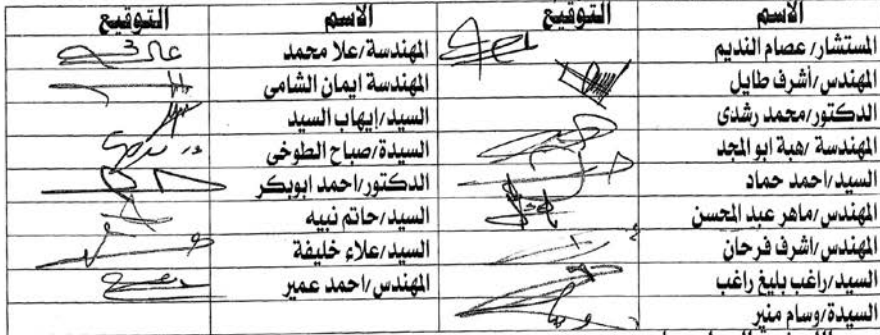 الاسم التوقيع الاسم التوقيع
المستشار/عصام النديم المهندسة/علا محمد
المهندس/أشرف طايل المهندسة ايمان الشامى
الدكتور/محمد رشدى السيد/إيهاب السيد
المهندسة /هبة ابو المجد السيدة/صباح الطوخى
السيد/احمد حماد الدكتور/احمد ابوبكر
المهندس/ماهر عبد المحسن السيد/حاتم نبيه
المهندس/اشرف فرحان السيد/علاء خليفة
السيد/راغب بليغ راغب المهندس/احمد عمير
السيدة/وسام منير